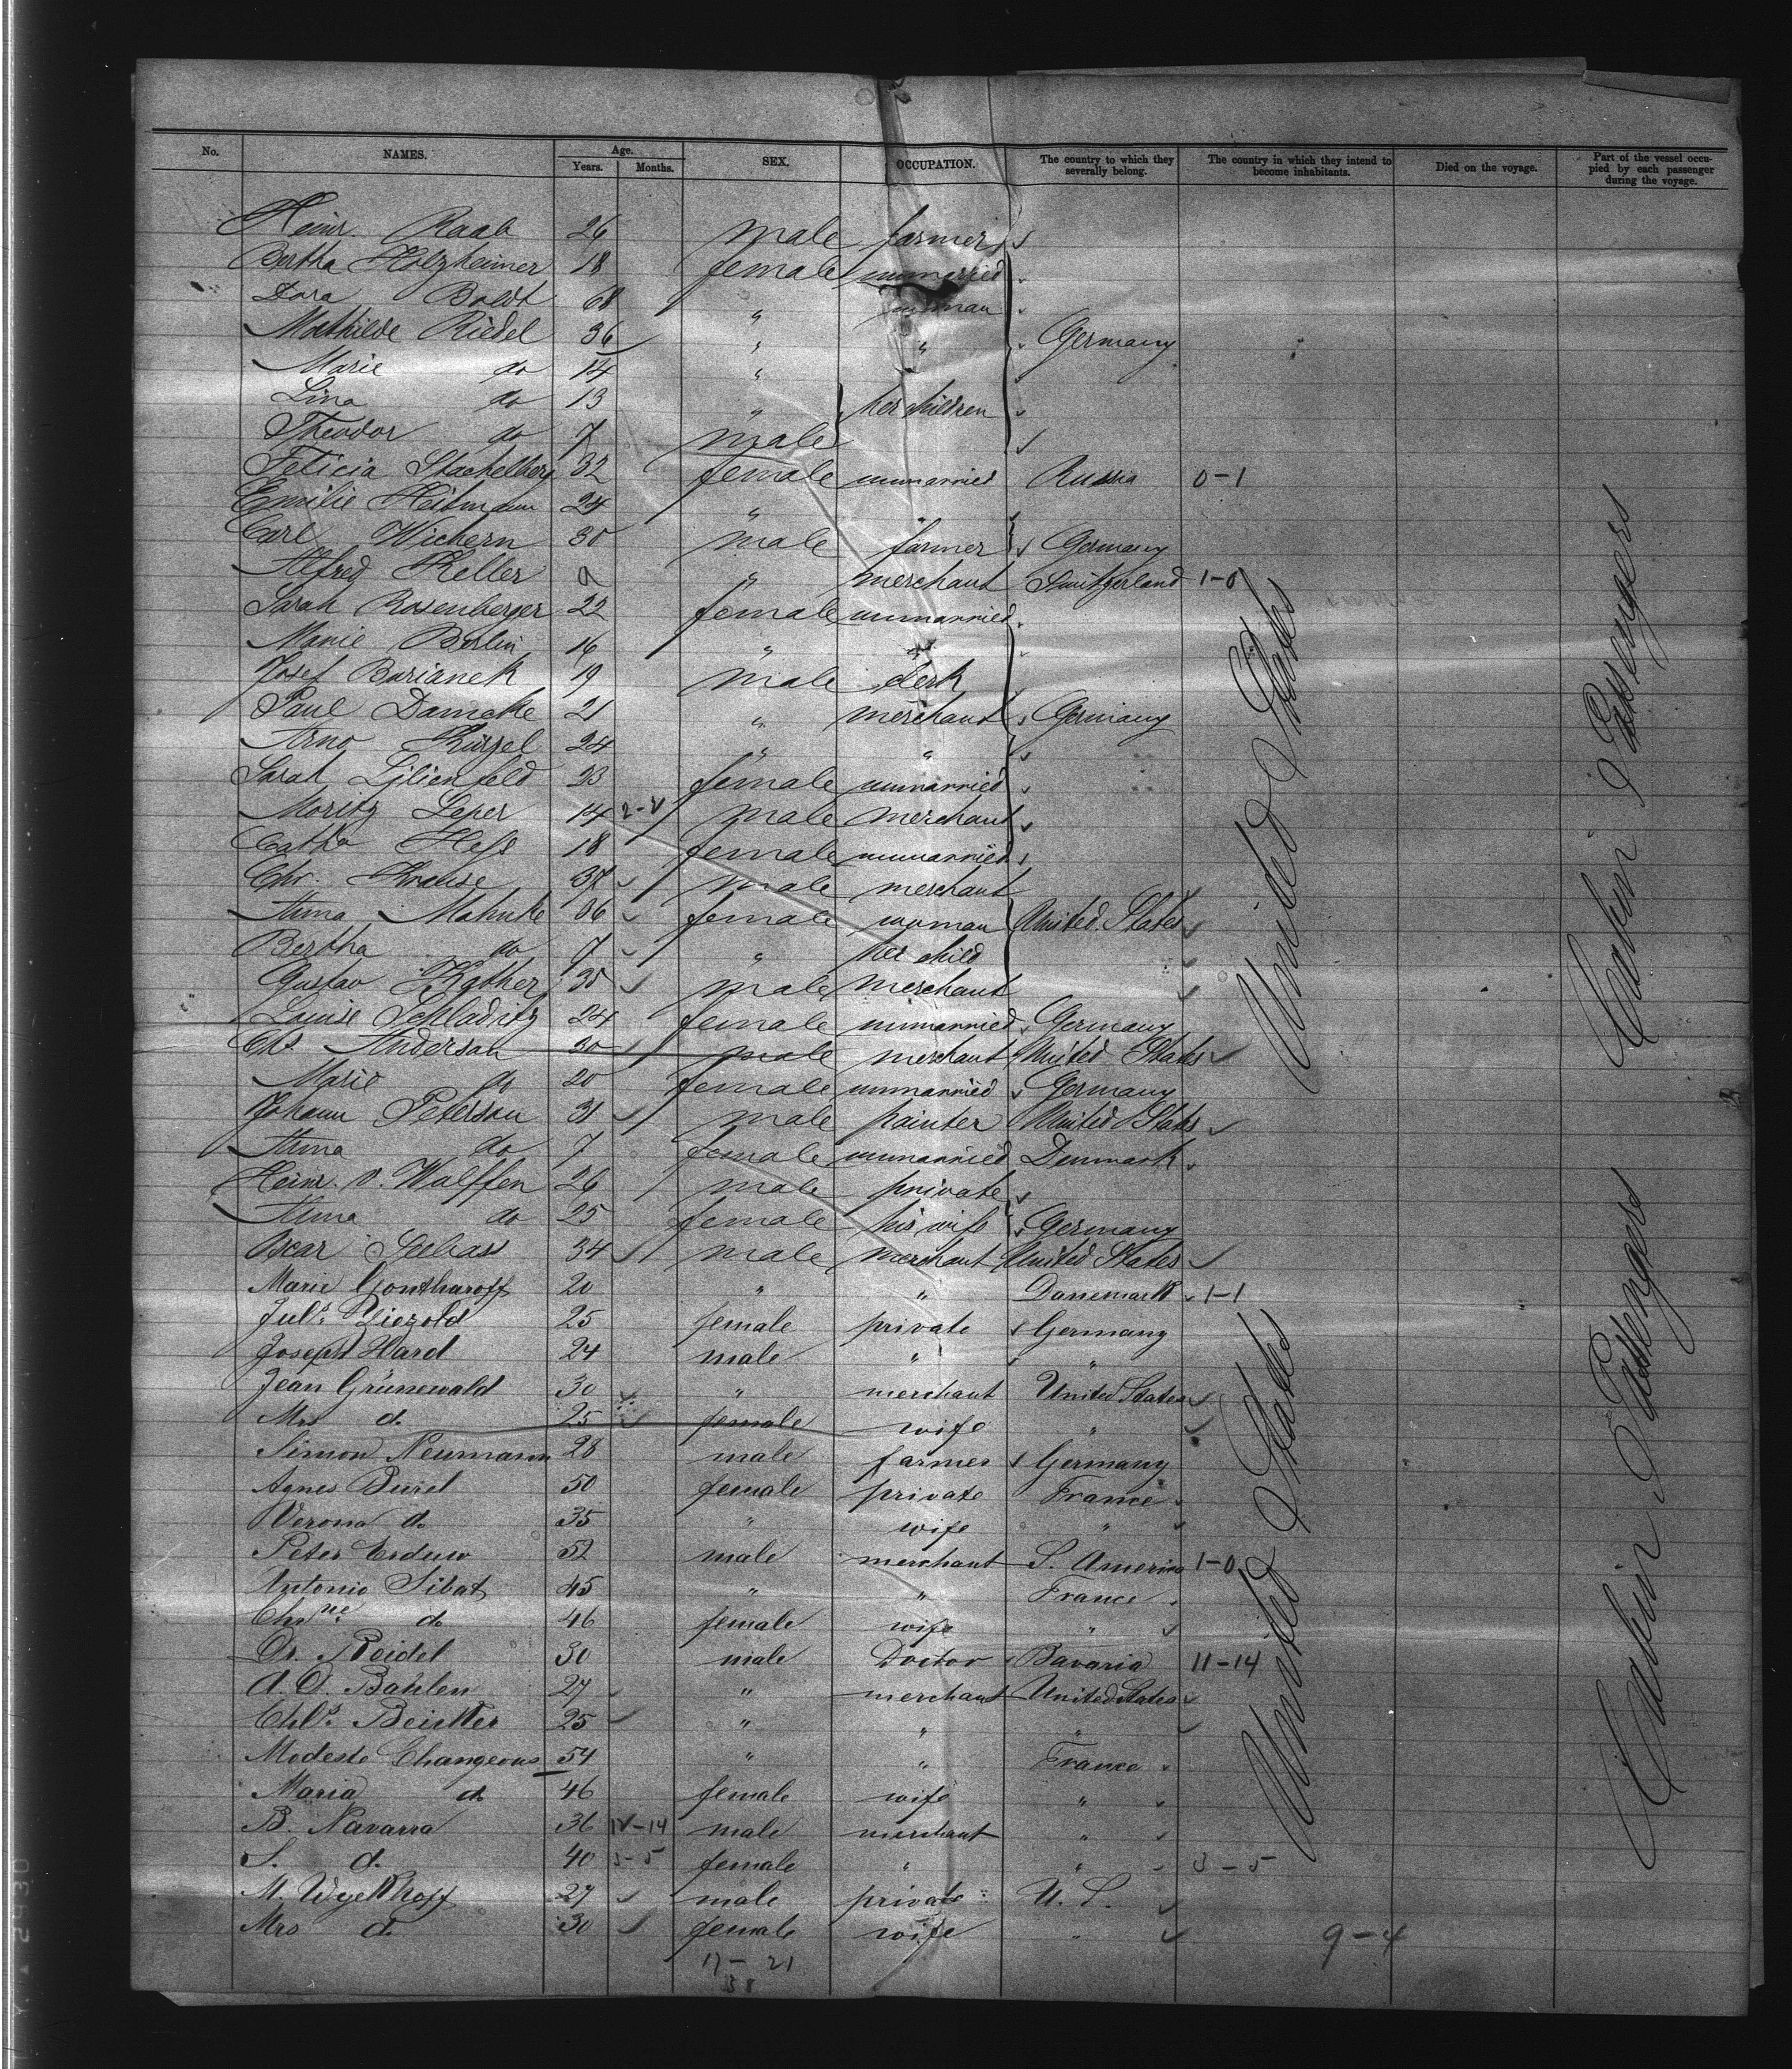 No. NAMES. Age. SEX. OCCUPATION. The country to which they severally belong. The country in which they intend to become inhabitants. Died on the voyage. Part of the vessel occupied by each passenger during the voyage.
Years. Months.
Heinr. Raab 26 male farmer
Bertha Holzheimer 18 female unmarried
Dora Boldt 68 " woman
Mathilde Riedel 36 " " Germany
Marie do 14 "
Lina do 13 " her children
Theodor do 7 male
Felicia Stachelberg 32 female unmarried Russia 0-1
Emilie Heitmann 24 " "
Carl Wichern 30 male farmer Germany
Alfred Keller 9 " merchant Switzerland 1-0
Sarah Rosenberger 22 female unmarried
Marie Berlin 16 " "
Josef Barianek 19 male clerk
Paul Damcke 21 " merchant Germany
Arno Kürzel 24 " "
Sarah Lilienfeld 23 female unmarried
Moritz Leper 14 male merchant
Catha Hess 18 female unmarried
Chr. Krause 37 male merchant
Anna Mahnke 36 female woman United States
Bertha do 7 " her child
Gustav Kather 35 male merchant
Louise Schladitz 24 female unmarried Germany
Chs Anderson 30 male merchant United States
Marie do 20 female unmarried Germany
Johann Peterson 31 male painter United States
Anna do 7 female unmarried Denmark
Heinr. v. Wulffen 26 male private
Anna do 25 female his wife Germany
Oscar Seebass 34 male merchant United States
Marie Gontharoff 20 " " Danemark 1-1
Juls Ziezold 25 female private Germany
Joseph Hard 24 male " "
Jean Grünewald 30 " merchant United States
Mrs do. 25 female wife "
Simon Neumann 28 male farmer Germany
Agnes Burel 50 female private France
Verona do. 35 " wife "
Peter 52 male merchant S. America 1-0
Antonio Sibat 45 " " France
Chrne do. 46 female wife "
Dr. Reidel 30 male Doctor Bavaria 11-14
A. D. Bahlen 27 " merchant United States
Chls. 25 " " "
Modeste Changeous 54 " " France
Maria do. 46 female wife "
B. Navarra 36 male merchant "
S. do. 40 3-5 female " " 3-5
M. Wyckhoff 27 male private U. S.
Mrs do. 30 female wife "
17-21 9-4
38
United States
United States
Cabin Passengers
Cabin Passengers